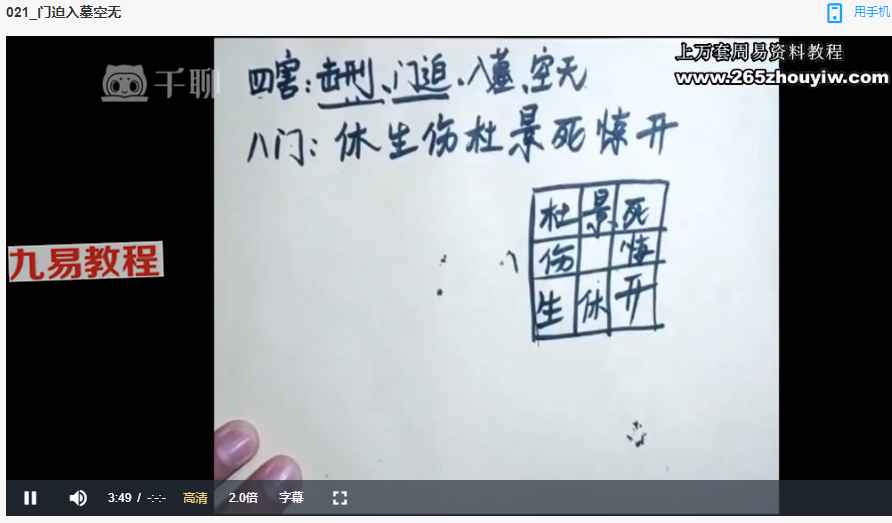 021_门迫入墓空无
用手机
上万套周易资料教程
www.265zhouyiw.com
千聊
四害:击刑、门迫、入墓、空无
八门:休生伤杜景死惊开
九易教程
杜 景 死
伤 惊
生 休 开
3:49 / -:-:-
高清
2.0倍
字幕